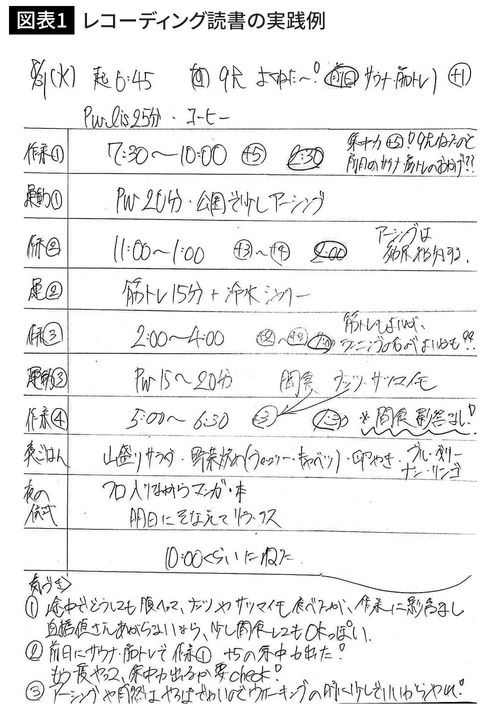 図表1 レコーディング読書の実践例
8/31(火) 起 6:45 9h よくねた〜! 前日 サウナ・筋トレ +1
Pw・lis 25分・コーヒー
作業① 7:30〜10:00 +5 2:30 集中力+5!9hねたのと
前日のサウナ・筋トレのおかげ??
運動① Pw 20分・公園で少しアーシング
作業② 11:00〜1:00 +3〜+4 2:00 アーシングは
運② 筋トレ15分+冷水シャワー
作業③ 2:00〜4:00 筋トレもよいが、
ランニングのほうがよいかも??
運動③ Pw 15〜20分 間食 ナッツ・サツマイモ
作業④ 5:00〜6:30 +3 1:30 *間食影響なし!
夜ごはん 山盛りサラダ・野菜炒め(ブロッコリー・キャベツ)・卵やき・ブルーベリー
ナッツ・リンゴ
夜の儀式 フロ入りながらマンガ・本
明日にそなえてリラックス
10:00くらいにねた
気づき
① 途中でどうしても腹へって、ナッツやサツマイモ食べたが、作業に影響なし
血糖値さえあがらないなら、少し間食してもOKっぽい。
② 前日にサウナ・筋トレで作業① +5の集中力出た!
もう一度やって、集中力出るか要check!
③ アーシングや自然はやればでかいのでウォーキングの時に少しでいいからやれ!